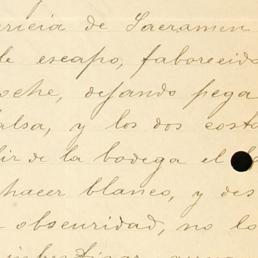 ericia de Sacramen
de escapo, faborecido
oche, dejando pega
alsa, y los dos costa
lir de la bodega el
hacer blanco, y des
obscuridad, no lo